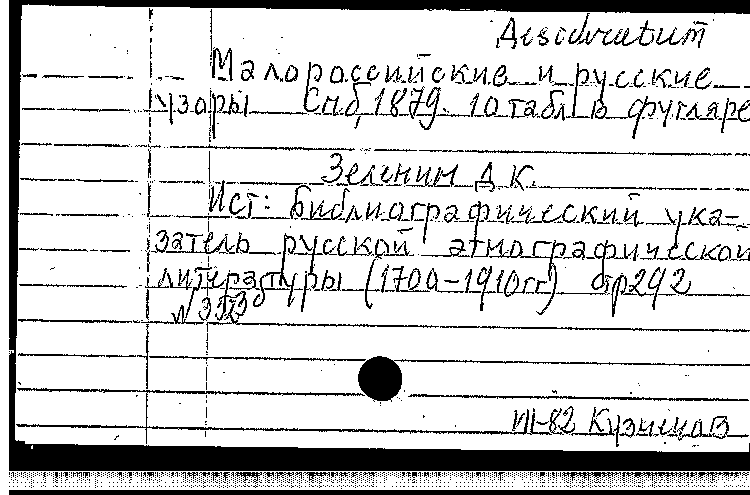 Desideratum
Малороссийские и русские
узоры Спб, 1879. 10 табл в футляре
Зеленин Д.К.
Ист: Библиографический ука-
затель русской этнографической
литературы (1700-1910гг) стр292
III-82 Кузнецов